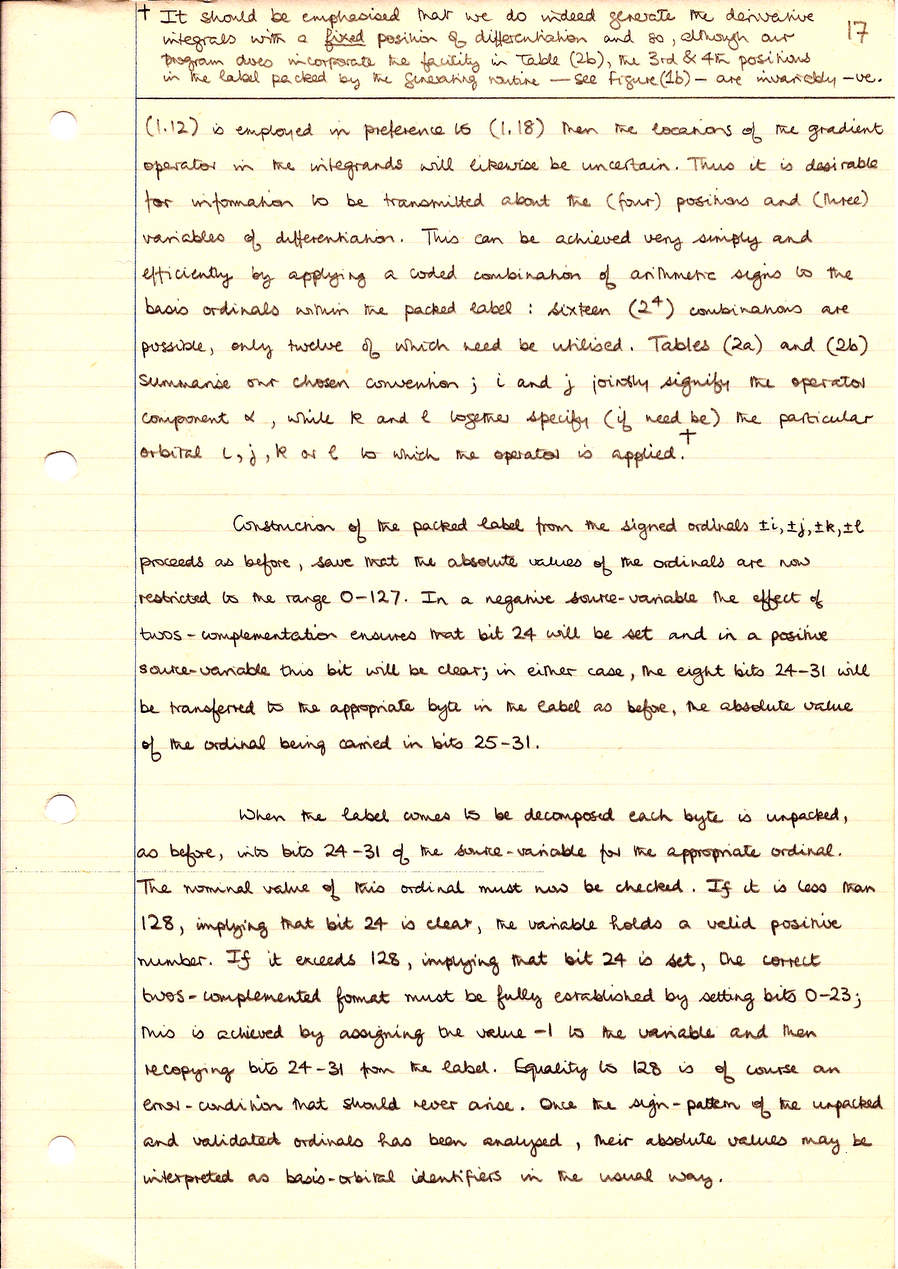 † It should be emphasised that we do indeed generate the derivative
integrals with a fixed position of differentiation and so, although our
program does incorporate the facility in Table (2b), the 3rd & 4th positions
in the label packed by the generating routine — see Figure (1b) — are invariably -ve.
17
(1.12) is employed in preference to (1.18) then the locations of the gradient
operator in the integrands will likewise be uncertain. Thus it is desirable
for information to be transmitted about the (four) positions and (three)
variables of differentiation. This can be achieved very simply and
efficiently by applying a coded combination of arithmetic signs to the
basis ordinals within the packed label : sixteen (2⁴) combinations are
possible, only twelve of which need be utilised. Tables (2a) and (2b)
summarise our chosen convention ; i and j jointly signify the operator
component α , while k and l together specify (if need be) the particular
orbital i, j, k or l to which the operator is applied.†
Construction of the packed label from the signed ordinals ±i, ±j, ±k, ±l
proceeds as before, save that the absolute values of the ordinals are now
restricted to the range 0-127. In a negative source-variable the effect of
twos-complementation ensures that bit 24 will be set and in a positive
source-variable this bit will be clear; in either case, the eight bits 24-31 will
be transferred to the appropriate byte in the label as before, the absolute value
of the ordinal being carried in bits 25-31.
When the label comes to be decomposed each byte is unpacked,
as before, into bits 24-31 of the source-variable for the appropriate ordinal.
The nominal value of this ordinal must now be checked. If it is less than
128, implying that bit 24 is clear, the variable holds a valid positive
number. If it exceeds 128, implying that bit 24 is set, the correct
twos-complemented format must be fully established by setting bits 0-23;
this is achieved by assigning the value -1 to the variable and then
recopying bits 24-31 from the label. Equality to 128 is of course an
error-condition that should never arise. Once the sign-pattern of the unpacked
and validated ordinals has been analysed, their absolute values may be
interpreted as basis-orbital identifiers in the usual way.